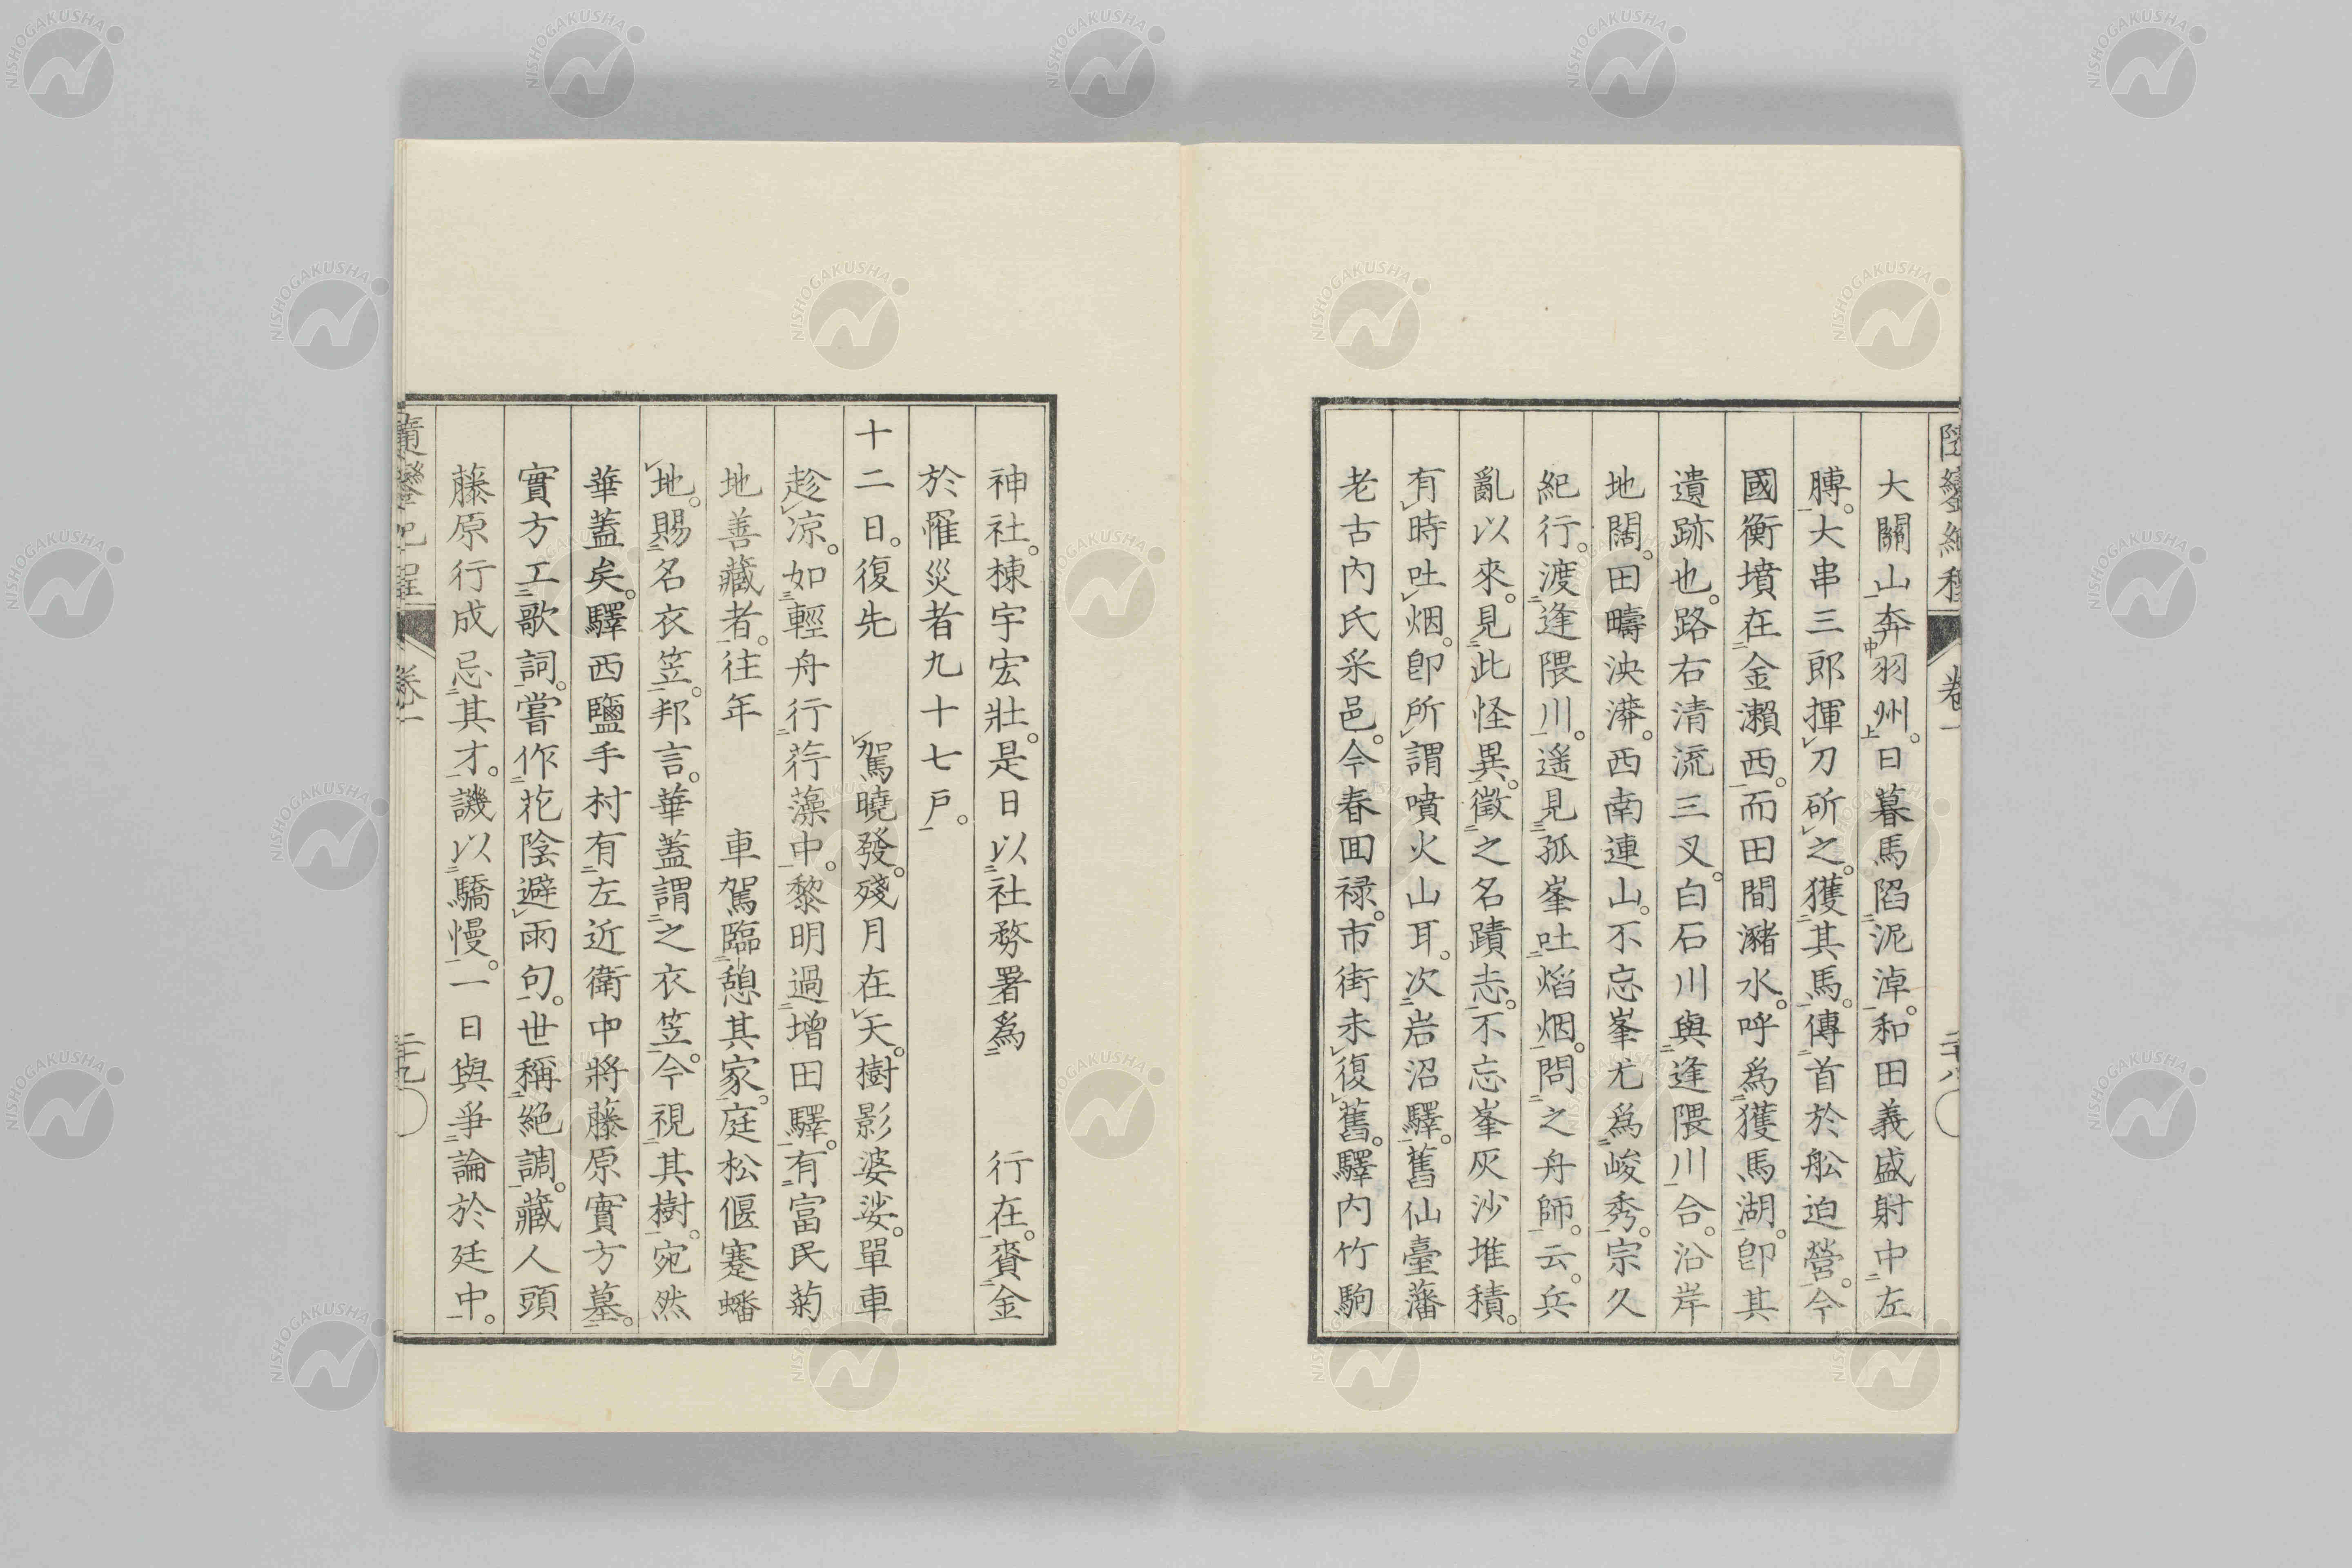 大關山奔羽州。日暮馬陷泥淖。和田義盛射中左
膊。大串三郎揮刀斫之。獲其馬。傳首於舩迫營。今
國衡墳在金瀬西。而田間瀦水。呼爲獲馬湖。卽其
遺跡也。路右清流三叉。白石川與逢隈川合。沿岸
地闊。田疇泱漭。西南連山。不忘峯尤爲峻秀。宗久
紀行。渡逢隈川。遥見孤峯吐焰烟。問之舟師。云。兵
亂以來。見此怪異。徵之名蹟志。不忘峯灰沙堆積。
有時吐烟。卽所謂噴火山耳。次岩沼驛。舊仙臺藩
老古内氏采邑。今春囬禄。市街未復舊。驛内竹駒
神社。棟宇宏壯。是日以社務署爲 行在。賚金
於罹災者九十七戸。
十二日。復先 駕曉發。殘月在天。樹影婆娑。單車
趁涼。如輕舟行荇藻中。黎明過增田驛。有富民菊
地善藏者。往年 車駕臨憩其家。庭松偃蹇蟠
地。賜名衣笠。邦言。華蓋謂之衣笠。今視其樹。宛然
華蓋矣。驛西鹽手村有左近衛中將藤原實方墓。
實方工歌詞。嘗作花陰避雨句。世稱絕調。藏人頭
藤原行成忌其才。譏以驕慢。一日與爭論於廷中。
卷一
二十九
NISHOGAKUSHA